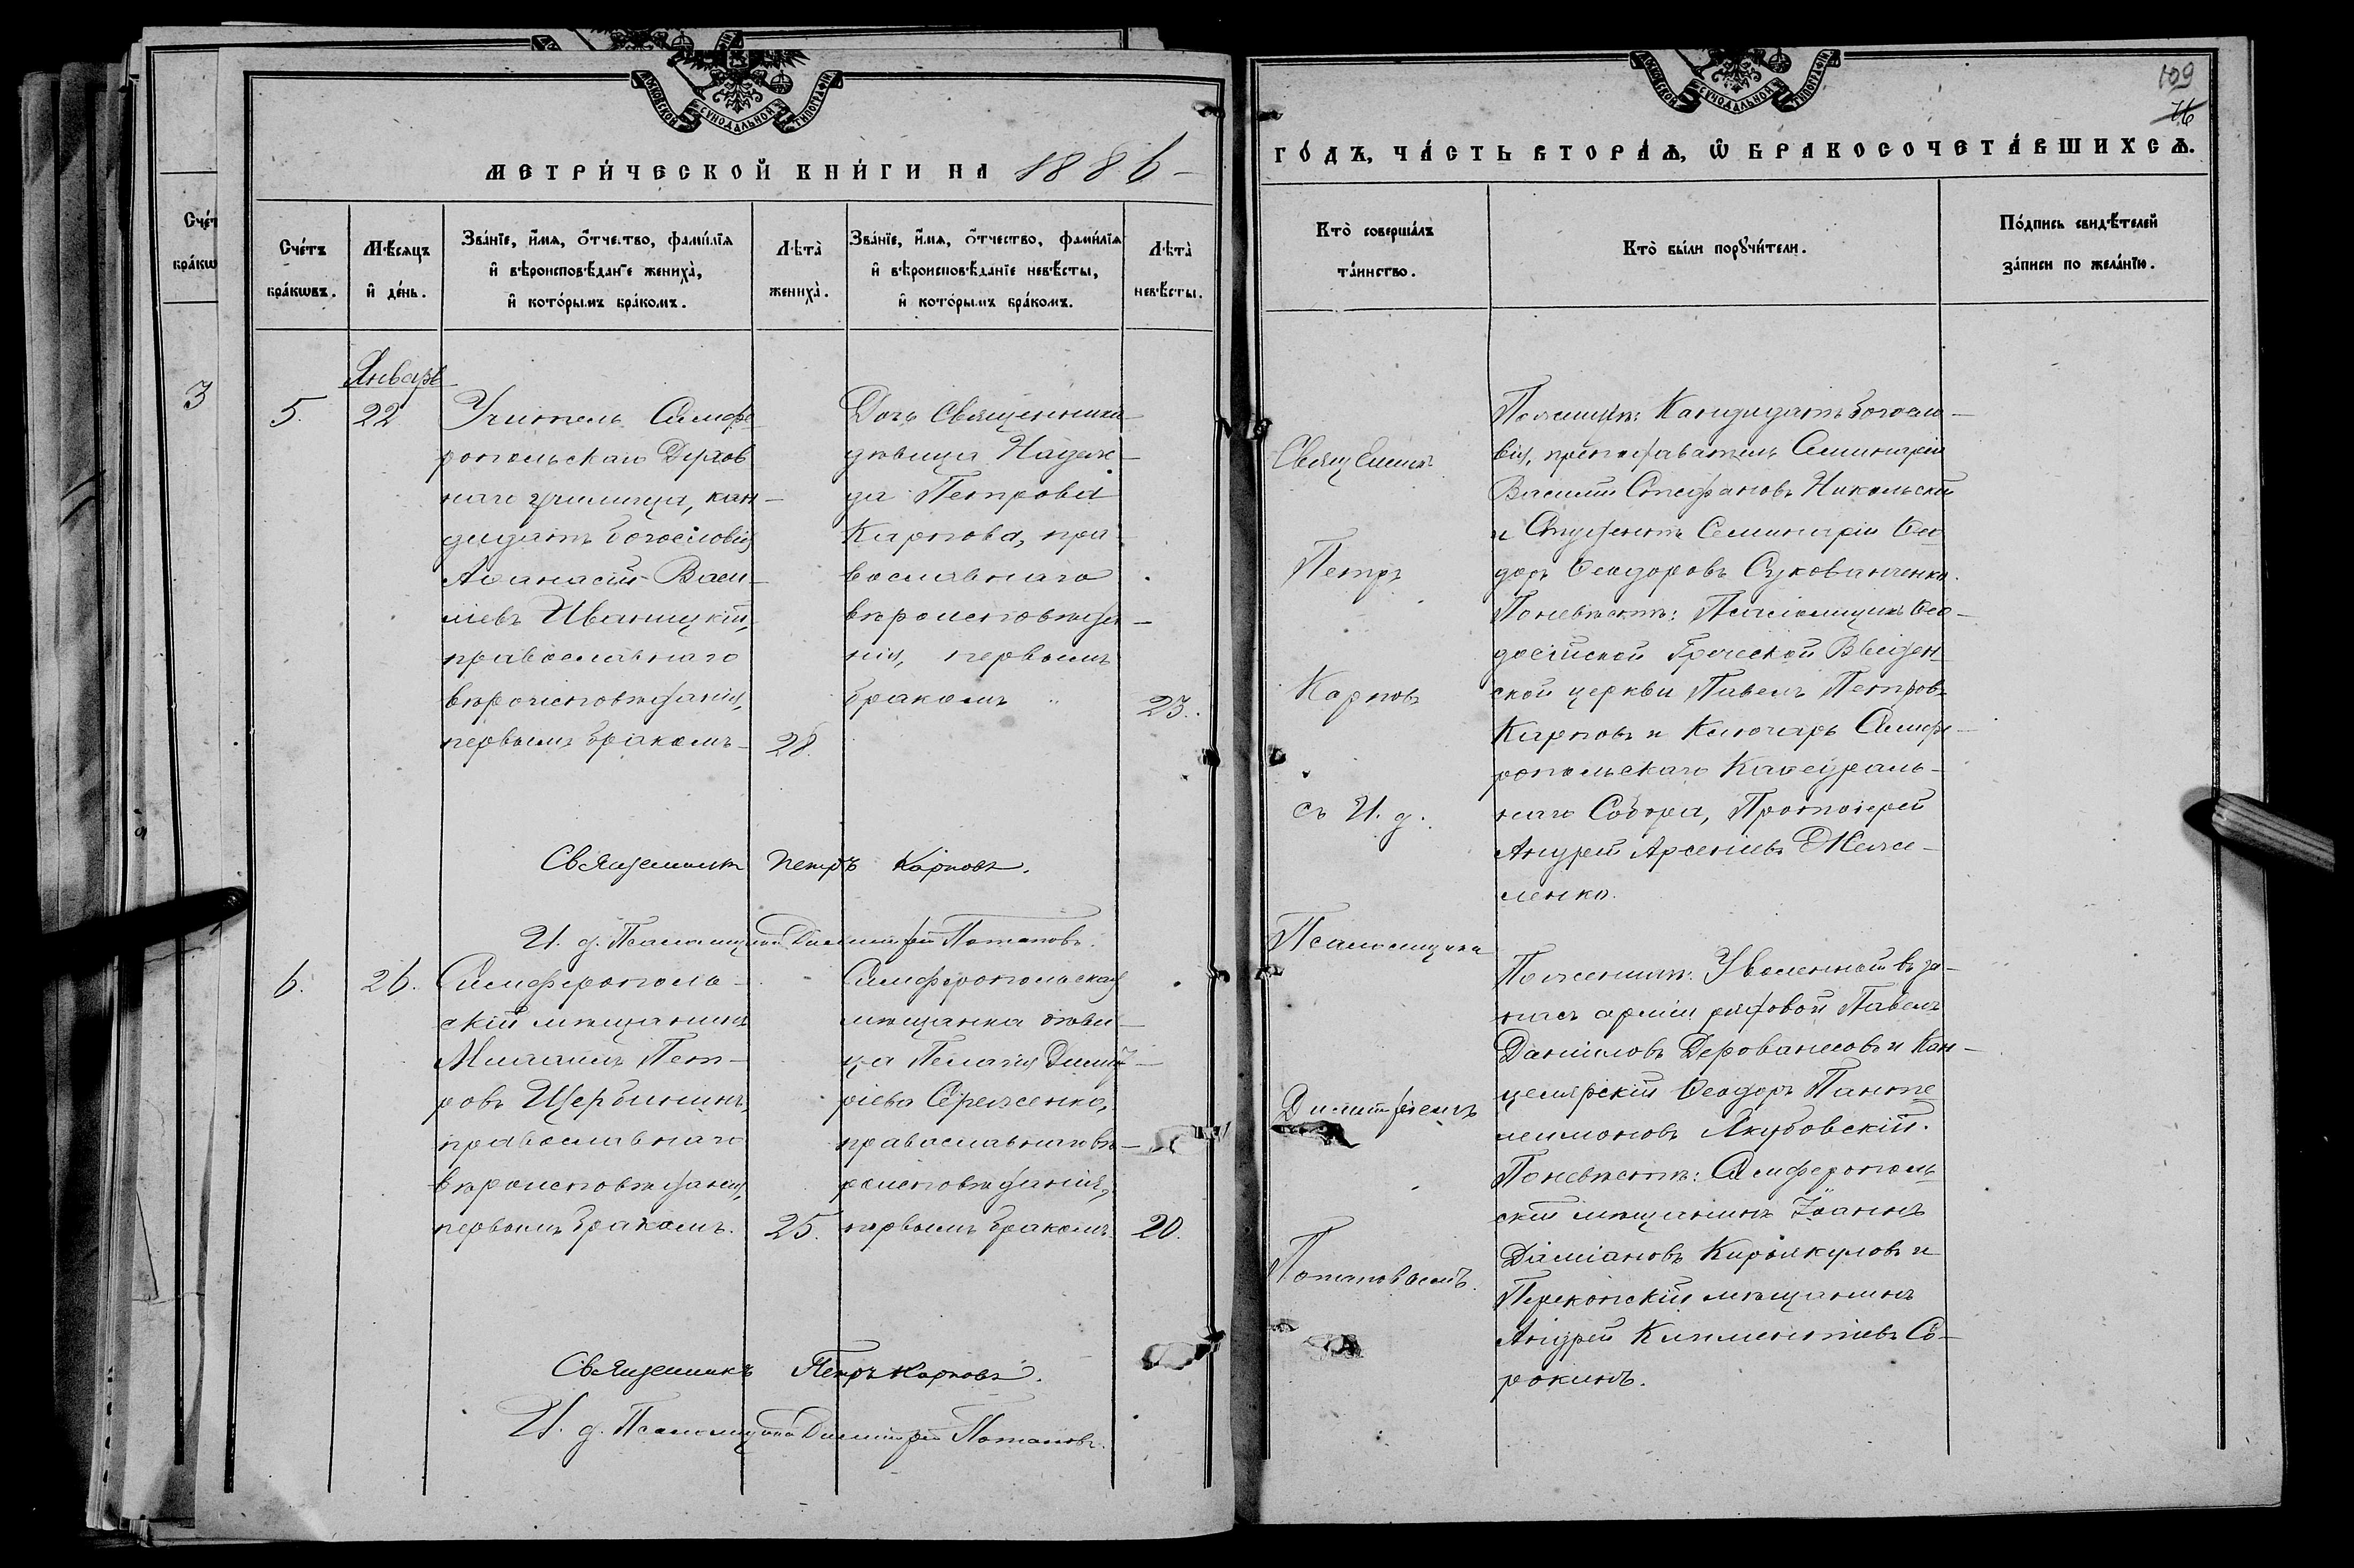 МОСКОВСКОЙ СУНОДАЛЬНОЙ ТИПОГРАФІИ
МЕТРИ́ЧЕСКОЙ КНИ́ГИ НА 1886
Сче́тъ бра́кωвъ.
Мѣ́сяцъ и҆ де́нь.
Зва́нїе, и҆́мѧ, ѻ҆́тчество, фами́лїѧ
и҆ вѣроисповѣ́данїе жениха̀,
и҆ кото́рымъ бра́комъ.
Лѣта̀ жениха̀.
Зва́нїе, и҆́мѧ, ѻ҆́тчество, фами́лїѧ
и҆ вѣроисповѣ́данїе невѣ́сты,
и҆ кото́рымъ бра́комъ.
Лѣта̀ невѣ́сты.
Счет
бракω
3
Январь
5.
22
Учитель Симфе
ропольскаго Духов
наго училища, кан-
дидатъ богословія
Аѳанасій Васи-
ліевъ Иваницкій,
православнаго
вѣроисповѣданія,
первымъ бракомъ
28.
Дочь Священника
дѣвица Надеж-
да Петрова
Карпова, пра
вославнаго
вѣроисповѣда-
нія, первымъ
бракомъ
23.
Священникъ Петръ Карповъ.
И. д. Псаломщика Димитрій Потаповъ.
6.
26.
Симферополь-
скій мѣщанинъ
Михаилъ Пет-
ровъ Щербининъ,
православнаго
вѣроисповѣданія,
первымъ бракомъ.
25.
Симферопольская
мѣщанка дѣви-
ца Пелагія Димит-
ріева Сереженко,
православнаго вѣ-
роисповѣданія,
первымъ бракомъ
20.
Священникъ Петръ Карповъ.
И. д. Псаломщика Димитрій Потаповъ.
109
76
МОСКОВСКОЙ СУНОДАЛЬНОЙ ТИПОГРАФІИ
ГО́ДЪ, ЧА́СТЬ ВТОРА́Ѧ, Ѽ БРАКОСОЧЕТА́ВШИХСѦ.
Кто̀ соверша́лъ
та́инство.
Кто̀ бы́ли порꙋчи́тели.
По́дпись свидѣ́телей
за́писи по жела́нїю.
Священникъ
Петръ
Карповъ
съ И. д.
Псаломщика
Димитріемъ
Потаповымъ.
По женихѣ: Кандидатъ богосло-
вія, преподаватель Семинаріи
Василій Стефановъ Никольскій
и Студентъ Семинаріи Ѳео
доръ Ѳеодоровъ Сукованченко.
По невѣстѣ: Псаломщикъ Ѳео-
досійской Греческой Введен
ской церкви Павелъ Петровъ
Карповъ и Ключарь Симфе-
ропольскаго Каѳедраль-
наго Собора, Протоіерей
Андрей Арсеніевъ Желе-
ленко.
По женихѣ: Уволенный въ за-
пасъ арміи рядовой Павелъ
Даніиловъ Дерованесовъ и Кан-
целярскій Ѳеодоръ Панте
леимоновъ Якубовскій.
По невѣстѣ: Симферополь
скій мѣщанинъ Іоаннъ
Даміановъ Кироякуловъ и
Перекопскій мѣщанинъ
Андрей Климентіевъ Со-
рокинъ.